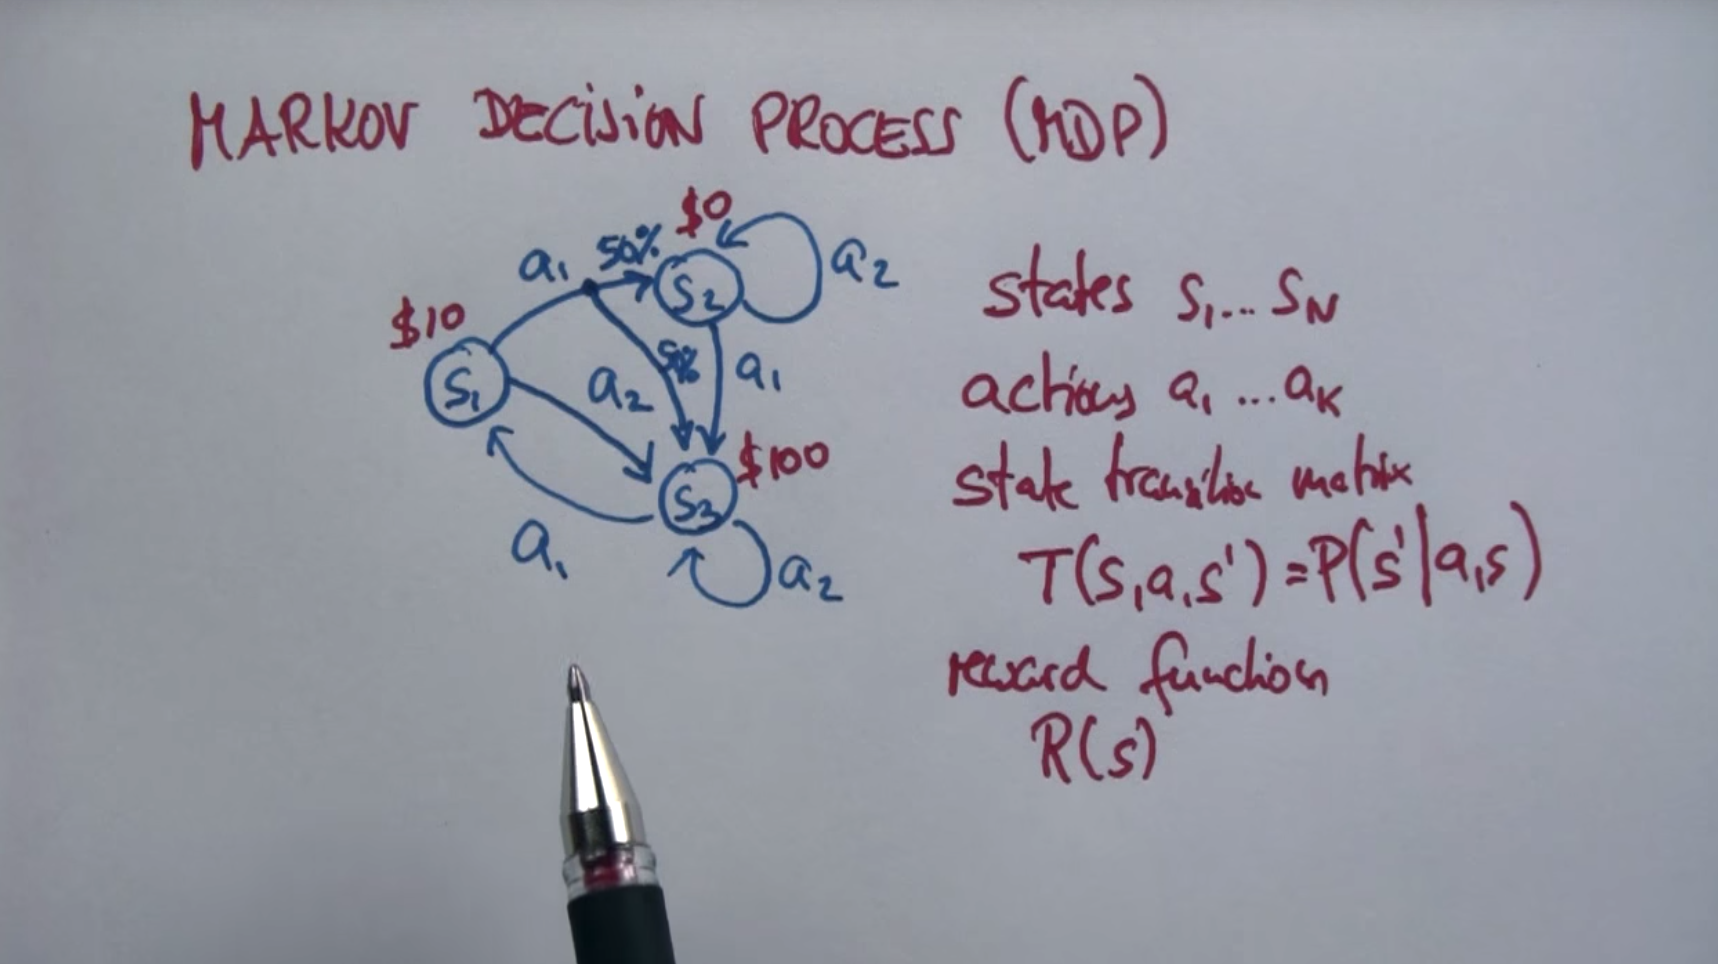 MARKOV DECISION PROCESS (MDP)
$0
a₁ 50% S₂ a₂
$10
S₁ a₂ 50% a₁
$100
S₃
a₁ a₂
states S₁...SN
actions a₁...aK
state transition matrix
T(s,a,s')=P(s'|a,s)
reward function
R(s)